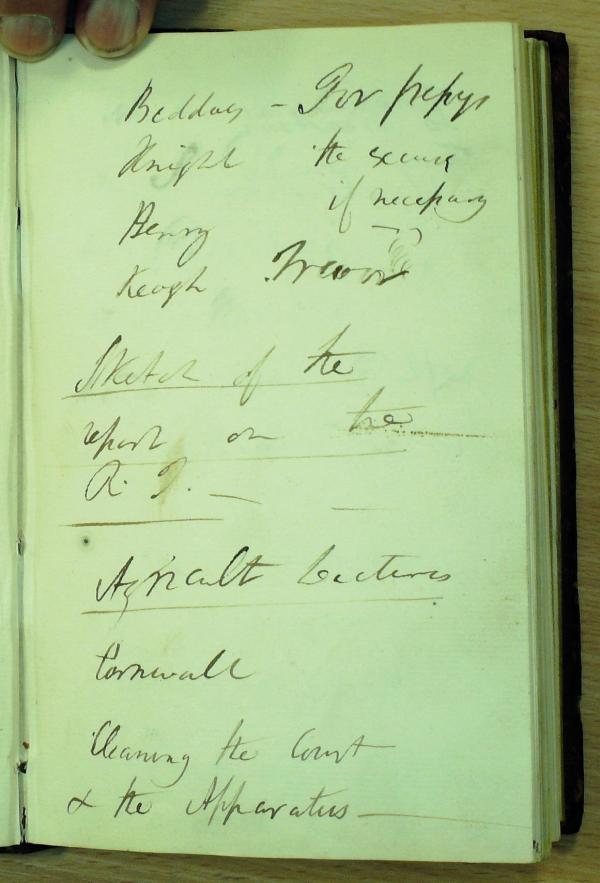 Beddoes - For pepys
Knight the excuse
if necessary
Henry
Keogh Trevor
Sketch of the
report on the
R. I. —
Agricult Lectures
Cornwall
Cleaning the Court
& the Apparatus —